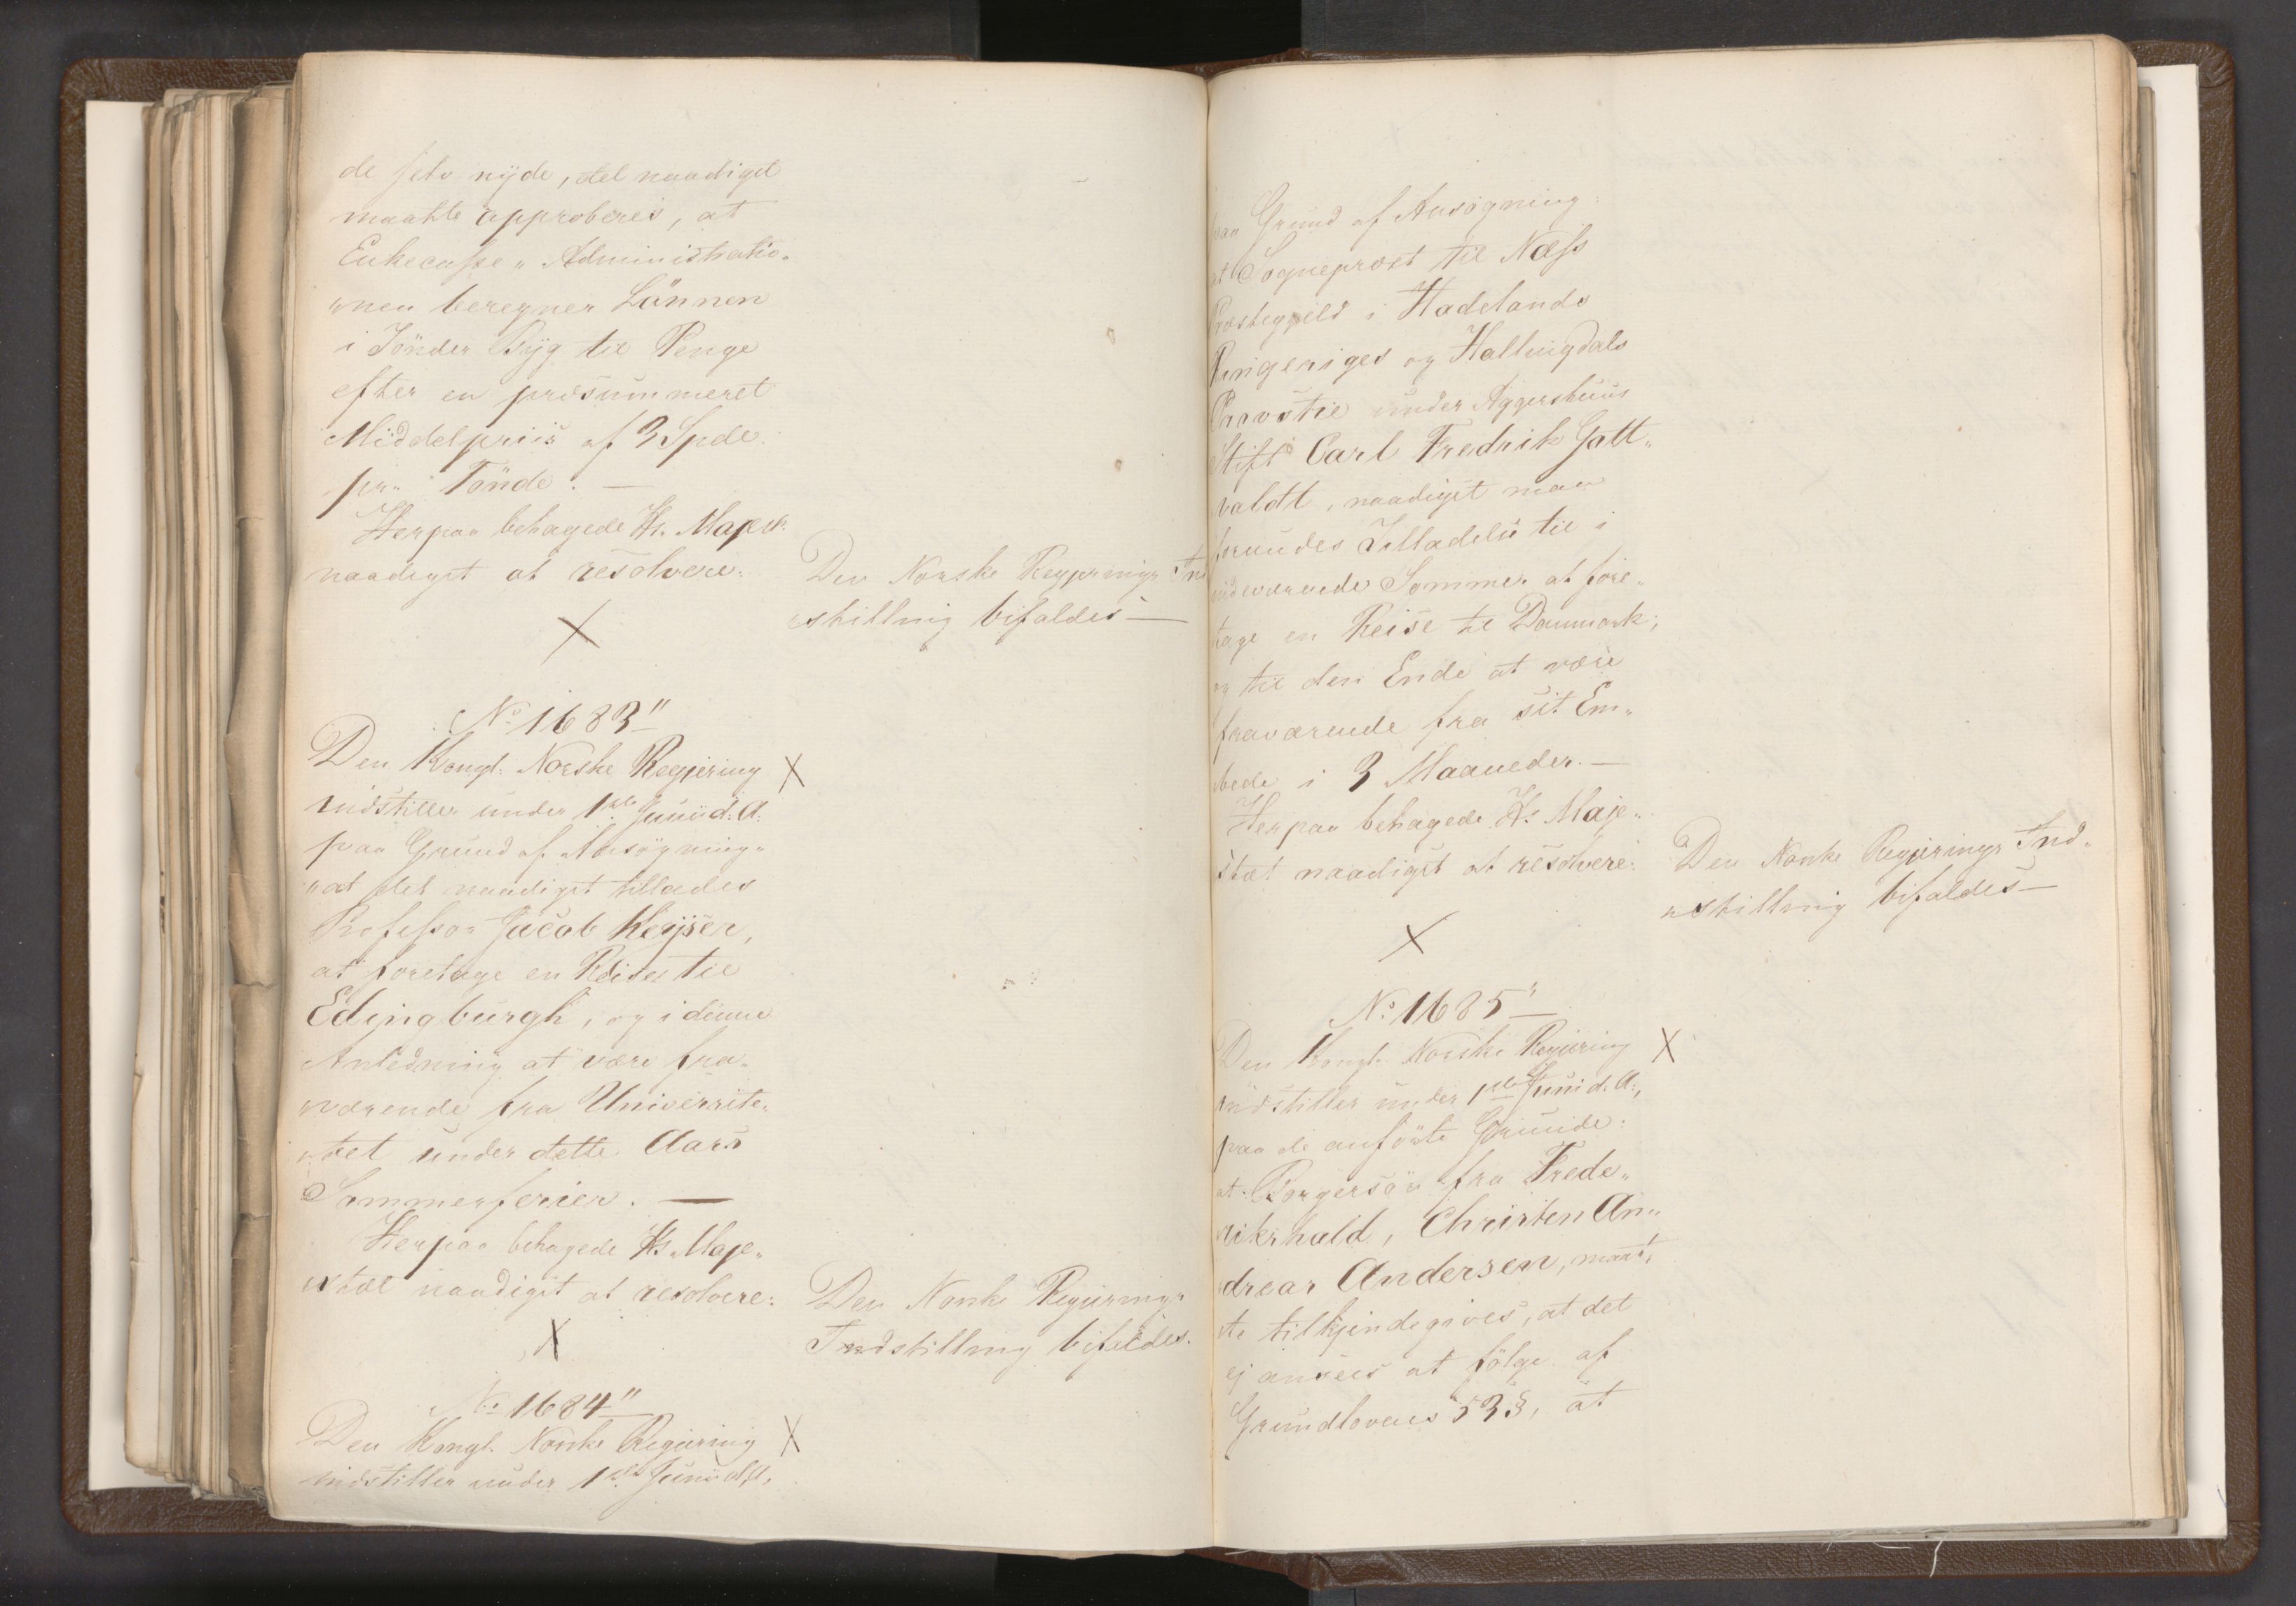 de selv nyde, det naadigst
maatte approberes, at
Enkecasse„Administratio„
„nen beregner Lönnen
i Tönder Byg til Penge
efter en præsummeret
Middelpriis af 3 Spd.
pr. Tönde. —
Herpaa behagede Hs. Majest.
naadigst at resolvere:
Den Norske Regjerings Ind
„stilling bifaldes —
X
No 1683"
Den Kongl. Norske Regjering X
indstiller under 1ste Junii d. A.
paa Grund af Ansögning„
„at det naadigst tillades
Professor Jacob Keyser,
at foretage en Reise til
Edingburgh, og i denne
Anledning at være fra„
„værende fra Universite„
„tet under dette Aars
Sommerferier. —
Herpaa behagede Hs. Maje„
„stæt naadigst at resolvere:
Den Norske Regjerings
Indstilling bifaldes.
X
No 1684"
Den Kongl. Norske Regjering X
indstiller under 1ste Junii d. A.
paa Grund af Ansögning:
at Sogneprest til Næss
Præstegjeld i Hadelands
Ringeriges og Hallingdals
Provstie under Aggershuus
Stift Carl Fredrik Gott„
valdt, naadigst maa
forundes Tilladelse til i
indeværende Sommer at fore„
tage en Reise til Danmark,
og til den Ende at være
fraværende fra sit Em„
bede i 3 Maaneder. —
Herpaa behagede Hs. Maje„
stæt naadigst at resolvere:
Den Norske Regjerings Ind„
„stilling bifaldes —
X
No 1685"
Den Kongl. Norske Regjering X
indstiller under 1ste Junii d. A.,
paa de anförte Grunde:
at Borgersön fra Frede„
rikshald, Christen An„
dreas Andersen, maat„
te tilkjendegives, at det
ej ansees at fölge af
Grundlovens 53 §, at